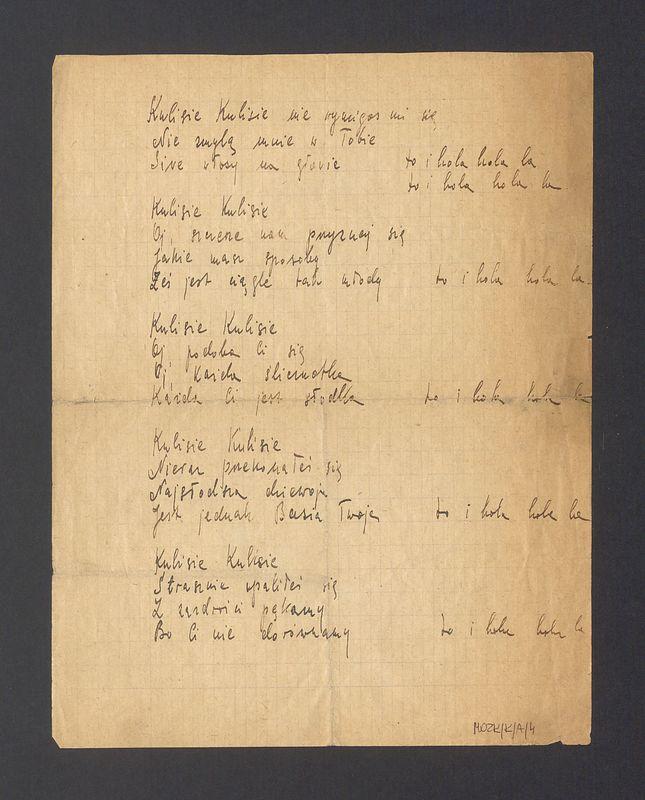 Kulisie Kulisie nie wymigas mi się
Nie zmylą mnie w Tobie
Siwe włosy na głowie to i hola hola la
to i hola hola la
Kulisie Kulisie
Oj, szczeze nam przyznaj się
Jakie masz sposoby
Żeś jest ciągle tak młody to i hola hola la
Kulisie Kulisie
Oj, podoba Ci się
Oj, każda ślicznotka
Każda Ci jest słodka to i hola hola la
Kulisie Kulisie
Nieraz przekonałeś się
Najsłodsza dziewoja
Jest jednak Basia Twoja to i hola hola la
Kulisie Kulisie
Strasznie opaliłeś się
Z zazdrości pękamy
Bo Ci nie dorównamy to i hola hola la
MOZK/K/A/4